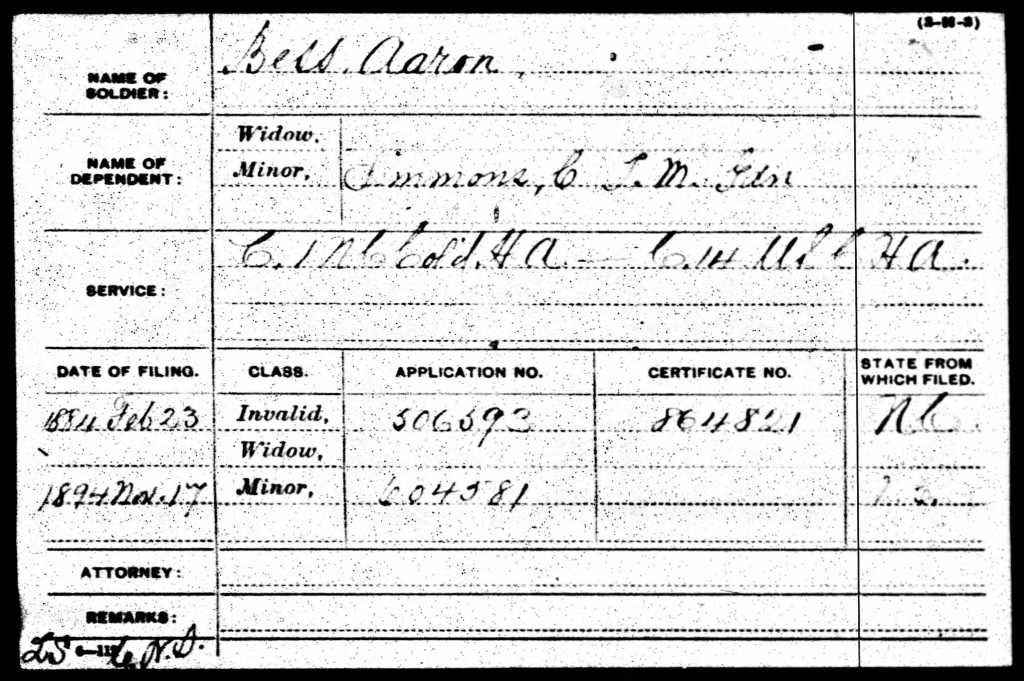 (3-H-3)
NAME OF SOLDIER: Bell, Aaron
NAME OF DEPENDENT: Widow,
Minor, Simmons, C T. M. Gdn
SERVICE: C. 1 N C Col'd. H A. — C. 14 U S C H A.
DATE OF FILING. CLASS. APPLICATION NO. CERTIFICATE NO. STATE FROM WHICH FILED.
1884 Feb 23 Invalid, 506593 864821 N C.
Widow,
1894 Nov. 17 Minor, 604581
ATTORNEY:
REMARKS: